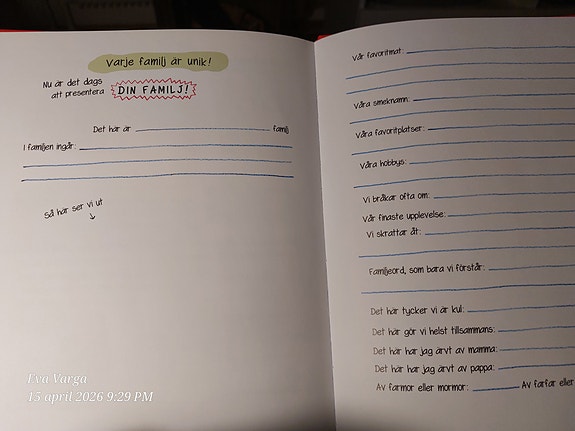 Varje familj är unik!
Nu är det dags
att presentera
DIN FAMILJ!
Det här är familj
I familjen ingår:
Så här ser vi ut
Eva Varga
15 april 2026 9:29 PM
Vår favoritmat:
Våra smeknamn:
Våra favoritplatser:
Våra hobbys:
Vi bråkar ofta om:
Vår finaste upplevelse:
Vi skrattar åt:
Familjeord, som bara vi förstår:
Det här tycker vi är kul:
Det här gör vi helst tillsammans:
Det här har jag ärvt av mamma:
Det här har jag ärvt av pappa:
Av farmor eller mormor: Av farfar eller